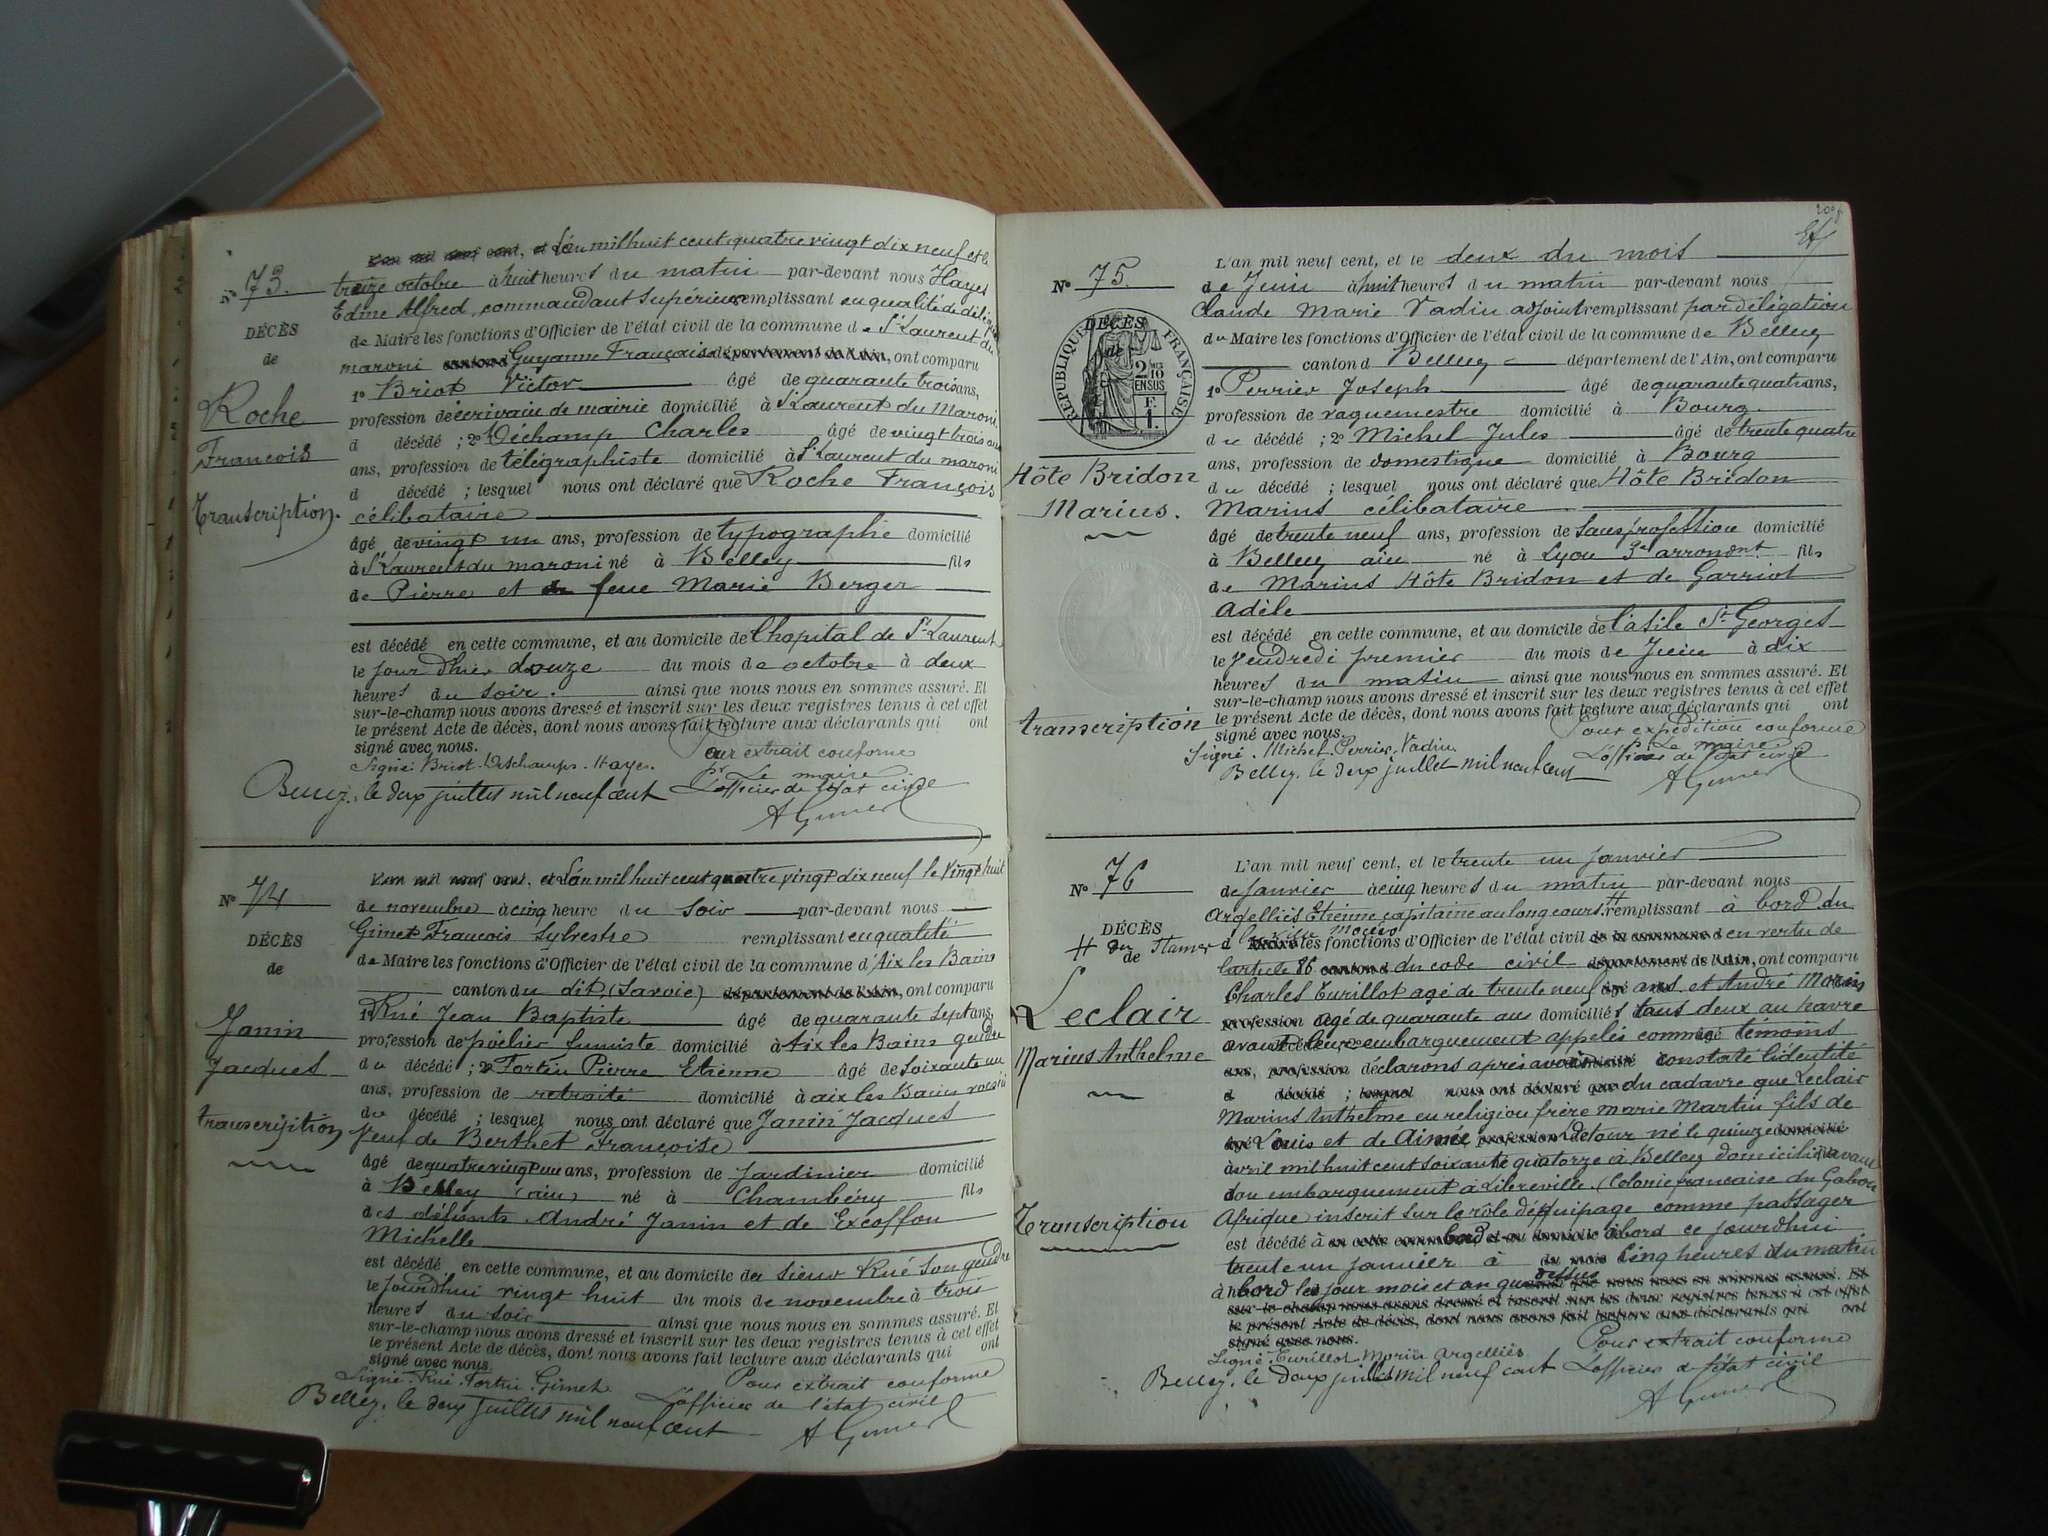 L'an mil neuf cent, et L'an mil huit cent quatre vingt dix neuf et le
N° 73. treize octobre à huit heures du matin par-devant nous Hayes
Edme Alfred, commandant supérieur remplissant en qualité de
DÉCÈS de Maire les fonctions d'Officier de l'état civil de la commune de St Laurent du
de maroni canton d Guyanne Française département de l'Ain, ont comparu
Roche 1° Briot Victor âgé de quarante trois ans,
profession de écrivain de mairie domicilié à St Laurent du Maroni
François d décédé ; 2° Déchamp Charles âgé de vingt trois ans
ans, profession de télégraphiste domicilié à St Laurent du maroni
d décédé ; lesquel nous ont déclaré que Roche François
Transcription. célibataire
âgé de vingt un ans, profession de typographe domicilié
à St Laurent du maroni né à Belley fils
de Pierre et de feue Marie Berger
est décédé en cette commune, et au domicile de l'hopital de St Laurent
le jour d'hier douze du mois de octobre à deux
heures du soir. ainsi que nous nous en sommes assuré. Et
sur-le-champ nous avons dressé et inscrit sur les deux registres tenus à cet effet
le présent Acte de décès, dont nous avons fait lecture aux déclarants qui ont
signé avec nous. Pour extrait conforme
Signé: Briot. Deschamps. Hayes. Pr Le maire
Belley, le deux juillet mil neuf cent L'officier de l'état civil
L'an mil neuf cent, et L'an mil huit cent quatre vingt dix neuf le vingt huit
N° 74 de novembre à cinq heure du soir par-devant nous
Gimet François Sylvestre remplissant en qualité
DÉCÈS de Maire les fonctions d'Officier de l'état civil de la commune d'Aix les Bains
de canton du dit (Savoie) département de l'Ain, ont comparu
1° Rué Jean Baptiste âgé de quarante sept ans,
Janin profession de poëlier fumiste domicilié à Aix les Bains gendre
Jacques du décédé ; 2° Fortin Pierre Etienne âgé de soixante un
ans, profession de retraité domicilié à aix les Bains voisin
du décédé ; lesquel nous ont déclaré que Janin Jacques
transcription veuf de Berthet Françoise
âgé de quatre vingt un ans, profession de jardinier domicilié
à Belley (ain) né à Chambéry fils
des défunts André Janin et de Excoffon
Michelle
est décédé en cette commune, et au domicile de sieur Rué son gendre
le jourd'hui vingt huit du mois de novembre à trois
heures du soir ainsi que nous nous en sommes assuré. Et
sur-le-champ nous avons dressé et inscrit sur les deux registres tenus à cet effet
le présent Acte de décès, dont nous avons fait lecture aux déclarants qui ont
signé avec nous.
Signé: Rué. Fortin. Gimet Pour extrait conforme
Belley, le deux juillet mil neuf cent L'officier de l'état civil
L'an mil neuf cent, et le deux du mois
N° 75. de Juin à huit heures du matin par-devant nous
Claude Marie Vadin adjoint remplissant par délégation
DÉCÈS du Maire les fonctions d'Officier de l'état civil de la commune de Belley
de canton d Belley département de l'Ain, ont comparu
RÉPUBLIQUE FRANÇAISE
1° Perrier Joseph âgé de quarante quatre ans,
profession de vaguemestre domicilié à Bourg.
du décédé ; 2° Michel Jules âgé de trente quatre
ans, profession de domestique domicilié à Bourg
Hôte Bridon du décédé ; lesquel nous ont déclaré que Hôte Bridon
Marius. Marius célibataire
âgé de trente neuf ans, profession de sans profession domicilié
à Belley ain né à Lyon 3e arrondt fils
de Marius Hôte Bridon et de Garriot
Adèle
est décédé en cette commune, et au domicile de l'asile St Georges
le Vendredi premier du mois de Juin à dix
heures du matin ainsi que nous nous en sommes assuré. Et
sur-le-champ nous avons dressé et inscrit sur les deux registres tenus à cet effet
transcription le présent Acte de décès, dont nous avons fait lecture aux déclarants qui ont
signé avec nous. Pour expédition conforme
Signé. Michel. Perrier. Vadin. Pr Le maire
Belley, le deux juillet mil neuf cent L'officier de l'état civil
L'an mil neuf cent, et le trente un janvier
N° 76 de janvier à cinq heures du matin par-devant nous
Argelliès Etienne capitaine au long cours remplissant à bord du
DÉCÈS d les fonctions d'Officier de l'état civil de la commune d en vertu de
de l'article 86 canton d du code civil département de l'Ain, ont comparu
Charles Turillot agé de trente neuf ans et André Morin
Leclair profession agé de quarante ans domiciliés tous deux au havre
avant leur embarquement appelés comme témoins
Marius Anthelme ans, profession déclarons après avoir constaté l'identité
d décédé ; lesquel nous ont déclaré que du cadavre que Leclair
Marius Anthelme en religion frère marie Martin fils de
âgé Louis et de Aimée profession Detour né le quinze domicilié
avril mil huit cent soixante quatorze à Belley domicilié avant
son embarquement à Libreville (Colonie française du Gabon
Transcription Afrique inscrit sur le rôle d'équipage comme passager
est décédé à bord ce jourd'hui
trente un janvier à du mois Cinq heures du matin
à bord les jour mois et an que dessus que nous nous en sommes assuré. Et
sur-le-champ nous avons dressé et inscrit sur les deux registres tenus à cet effet
le présent Acte de décès, dont nous avons fait lecture aux déclarants qui ont
signé avec nous. Pour extrait conforme
Signé. Turillot. Morin Argelliès
Belley, le deux juillet mil neuf cent L'officier de l'état civil